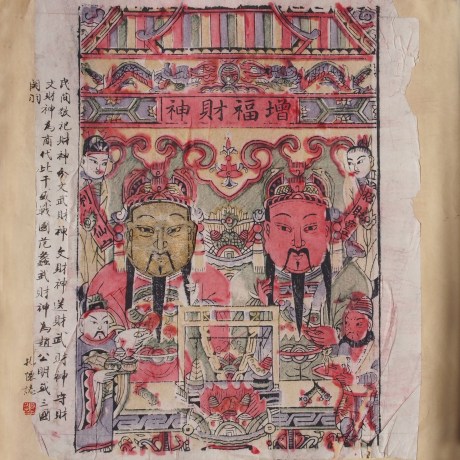 增福財神
民間敬祀財神分文武財神文財神送財武財神守財
文財神為商代比干或戰國范蠡武財神為趙公明或三國
關羽